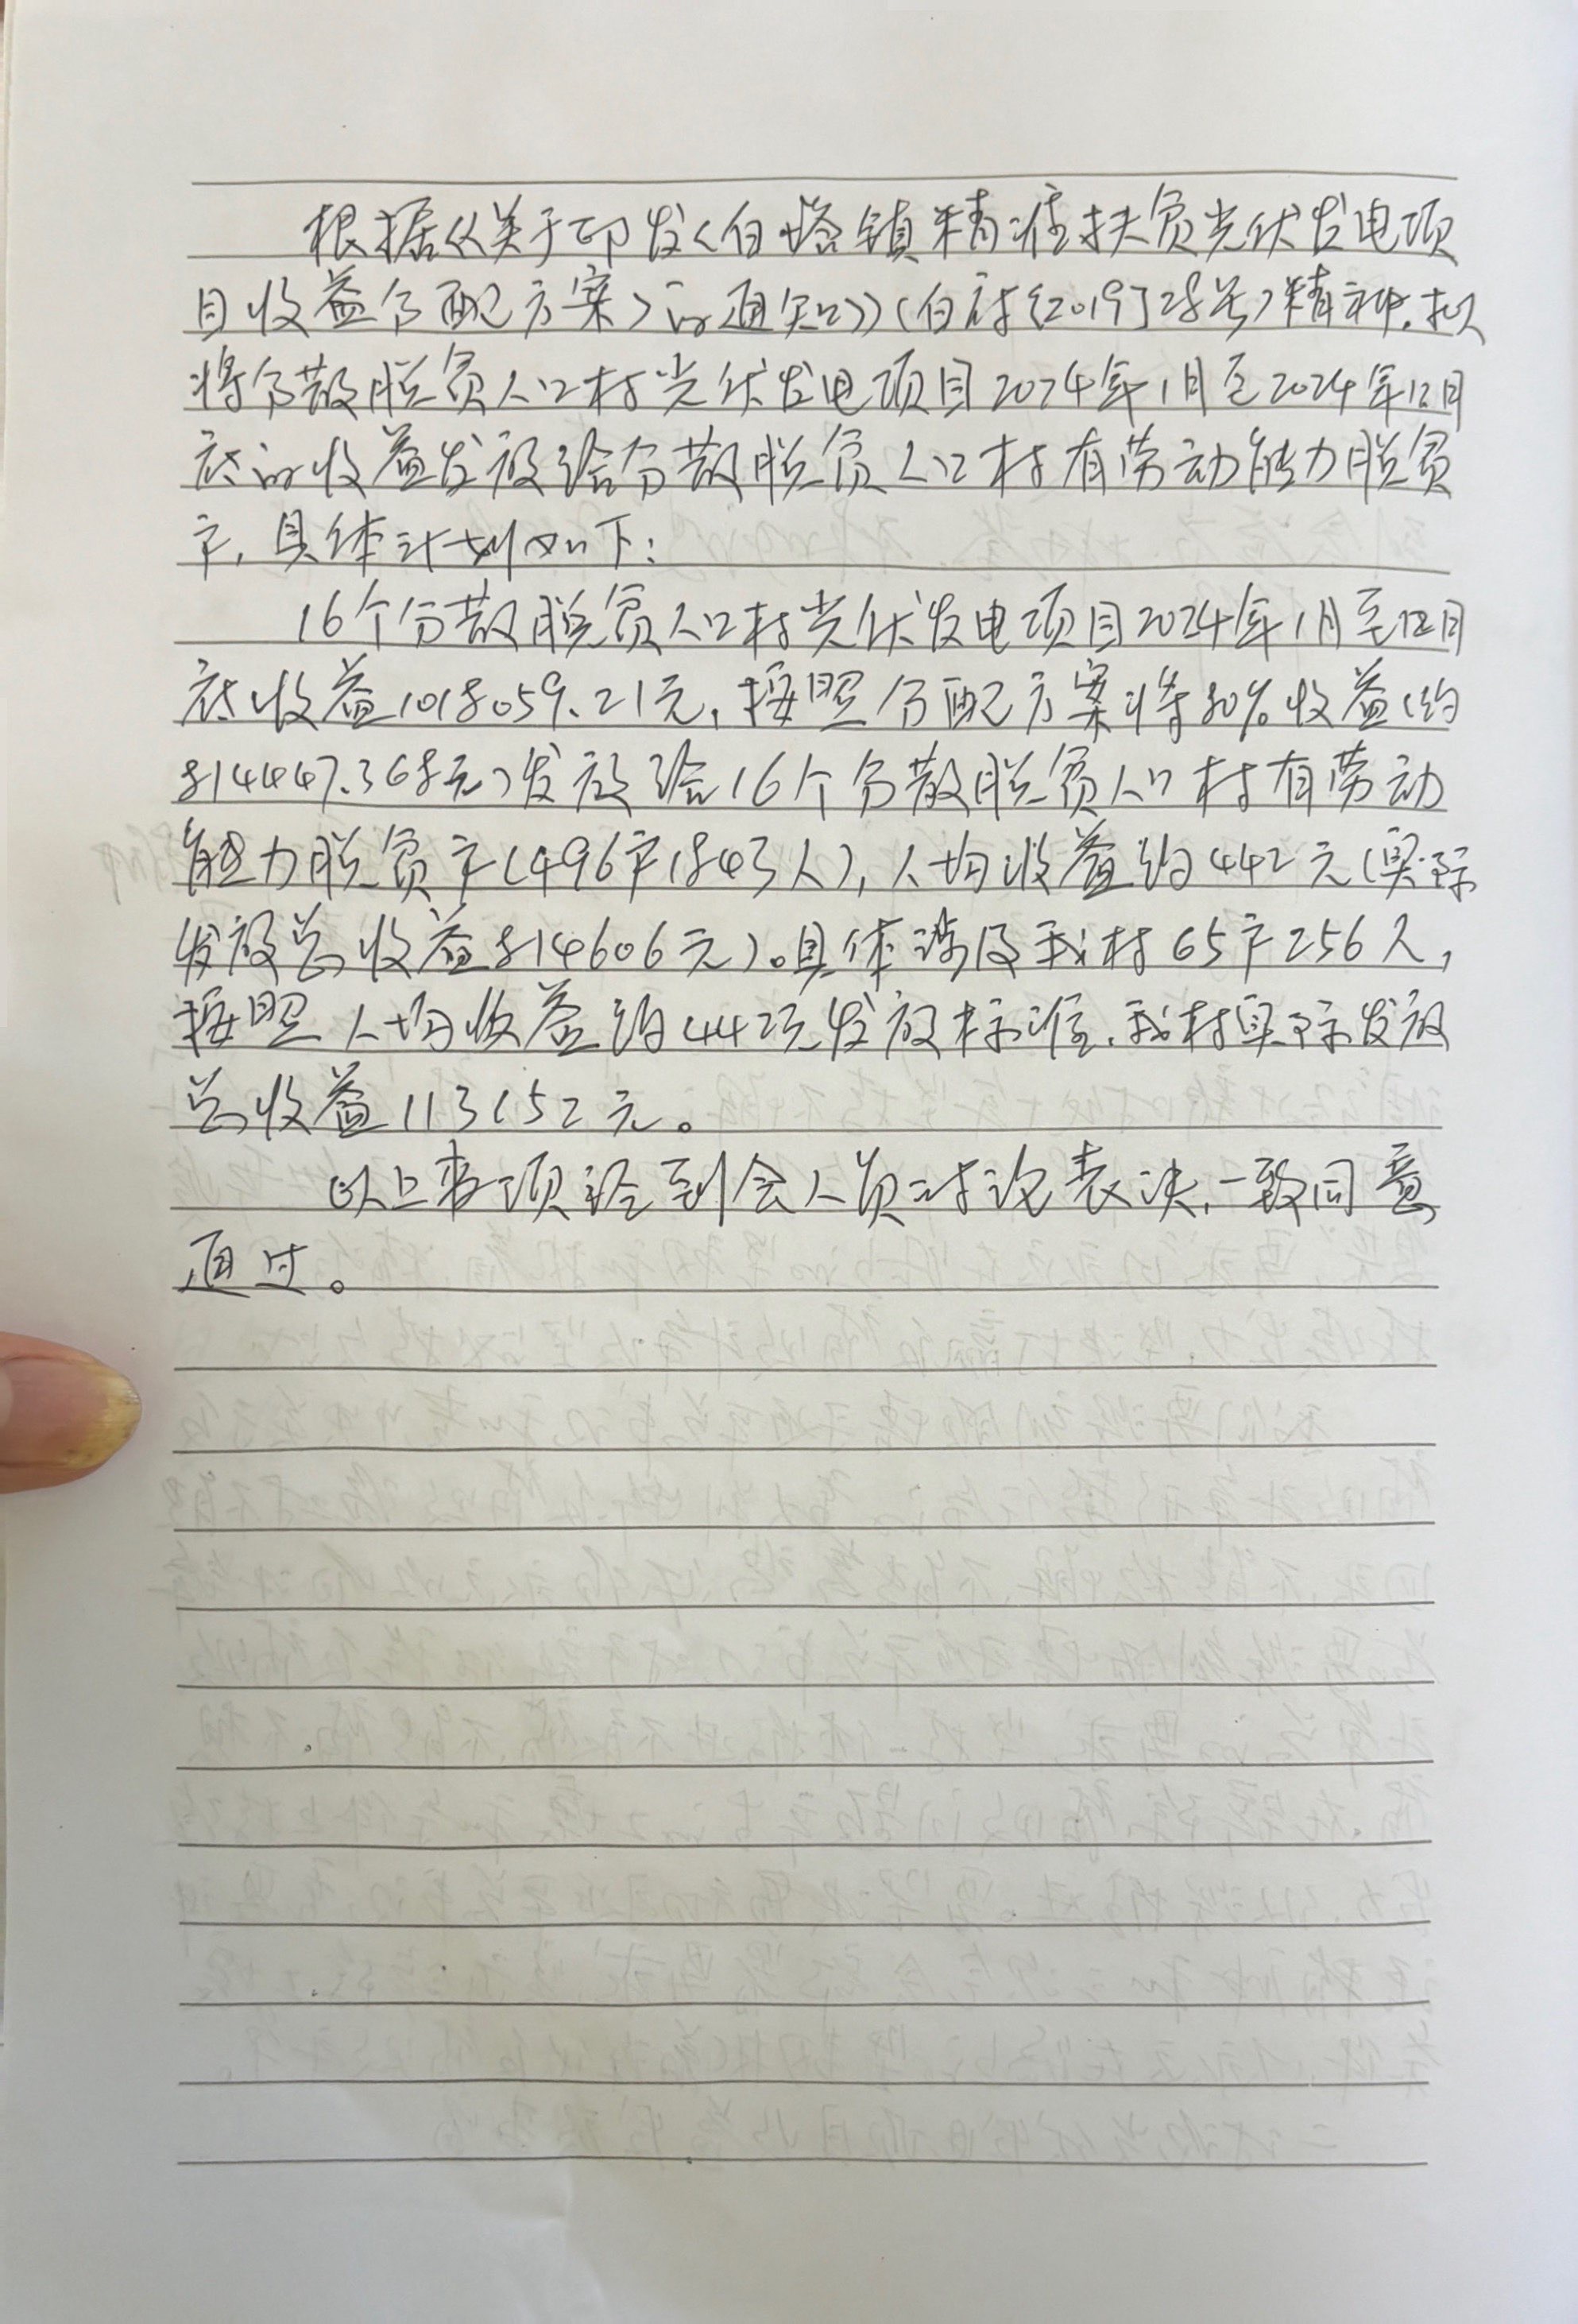 根据《关于印发〈白塔镇精准扶贫光伏发电项
目收益分配方案〉的通知》(白府〔2019〕28号)精神,拟
将分散脱贫人口村光伏发电项目2024年1月至2024年12月
底的收益发放给分散脱贫人口村有劳动能力脱贫
户,具体计划如下:
16个分散脱贫人口村光伏发电项目2024年1月至12月
底收益1018059.21元,按照分配方案将80%收益(约
814447.368元)发放给16个分散脱贫人口村有劳动
能力脱贫户(496户1843人),人均收益约442元(实际
发放总收益814606元)。具体涉及我村65户256人,
按照人均收益约442元发放标准,我村实际发放
总收益113152元。
以上事项经到会人员讨论表决,一致同意
通过。